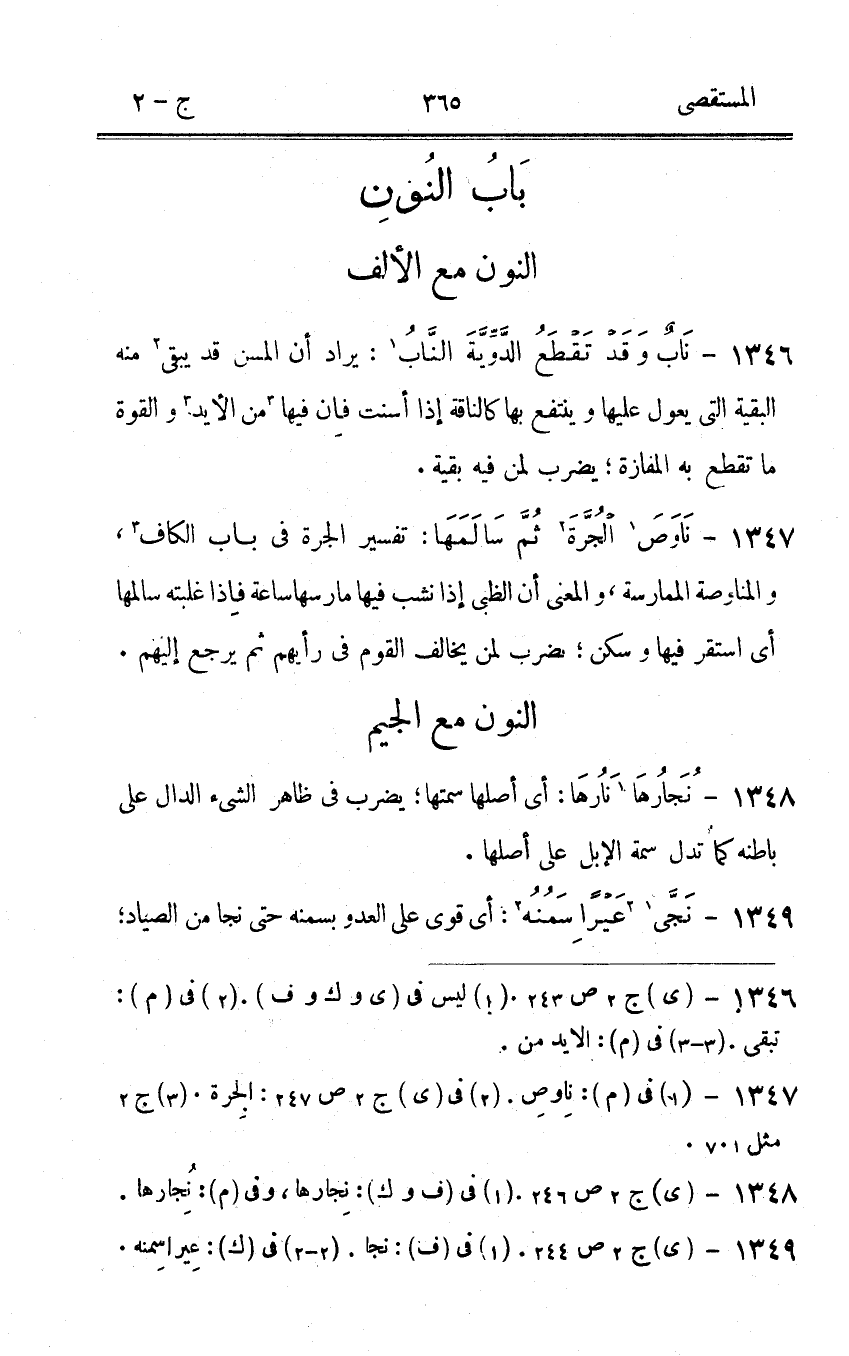 المستقصى ٣٦٥ ج - ٢
بَابُ النُونِ
النون مع الألف
١٣٤٦ - نَابٌ وَقَدْ تَقْطَعُ الدَّوِّيَّةَ النَّابُ١ : يراد أن المسن قد يبقى٢ منه
البقية التى يعول عليها و ينتفع بها كالناقة إذا أسنت فإن فيها ٣من الأيد٣ و القوة
ما تقطع به المفازة ؛ يضرب لمن فيه بقية .
١٣٤٧ - نَاوَصَ١ الْجُرَّةَ٢ ثُمَّ سَالَمَهَا : تفسير الجرة فى باب الكاف٣ ،
و المناوصة الممارسة ، و المعنى أن الظبى إذا نشب فيها مارسها ساعة فإذا غلبته سالمها
أى استقر فيها و سكن ؛ يضرب لمن يخالف القوم فى رأيهم ثم يرجع إليهم .
النون مع الجيم
١٣٤٨ - نُجَارُهَا١ نَارُهَا : أى أصلها سمتها ؛ يضرب فى ظاهر الشىء الدال على
باطنه كما تدل سمة الإبل على أصلها .
١٣٤٩ - نَجَّى١ ٢عَيْرًا سِمَنُهُ٢ : أى قوى على العدو بسمنه حتى نجا من الصياد ؛
١٣٤٦ - (ى) ج ٢ ص ٢٤٣ . (١) ليس فى (ى و ك و ف) . (٢) فى (م) :
تبقى . (٣-٣) فى (م) : الايد من .
١٣٤٧ - (١) فى (م) : ناوِص . (٢) فى (ى) ج ٢ ص ٢٤٧ : الجِرة . (٣) ج ٢
مثل ٧٠١ .
١٣٤٨ - (ى) ج ٢ ص ٢٤٦ . (١) فى (ف و ك) : نِجارها ، وفى (م) : نُجِارها .
١٣٤٩ - (ى) ج ٢ ص ٢٤٤ . (١) فى (ف) : نجا . (٢-٢) فى (ك) : عِيراسِمنه .